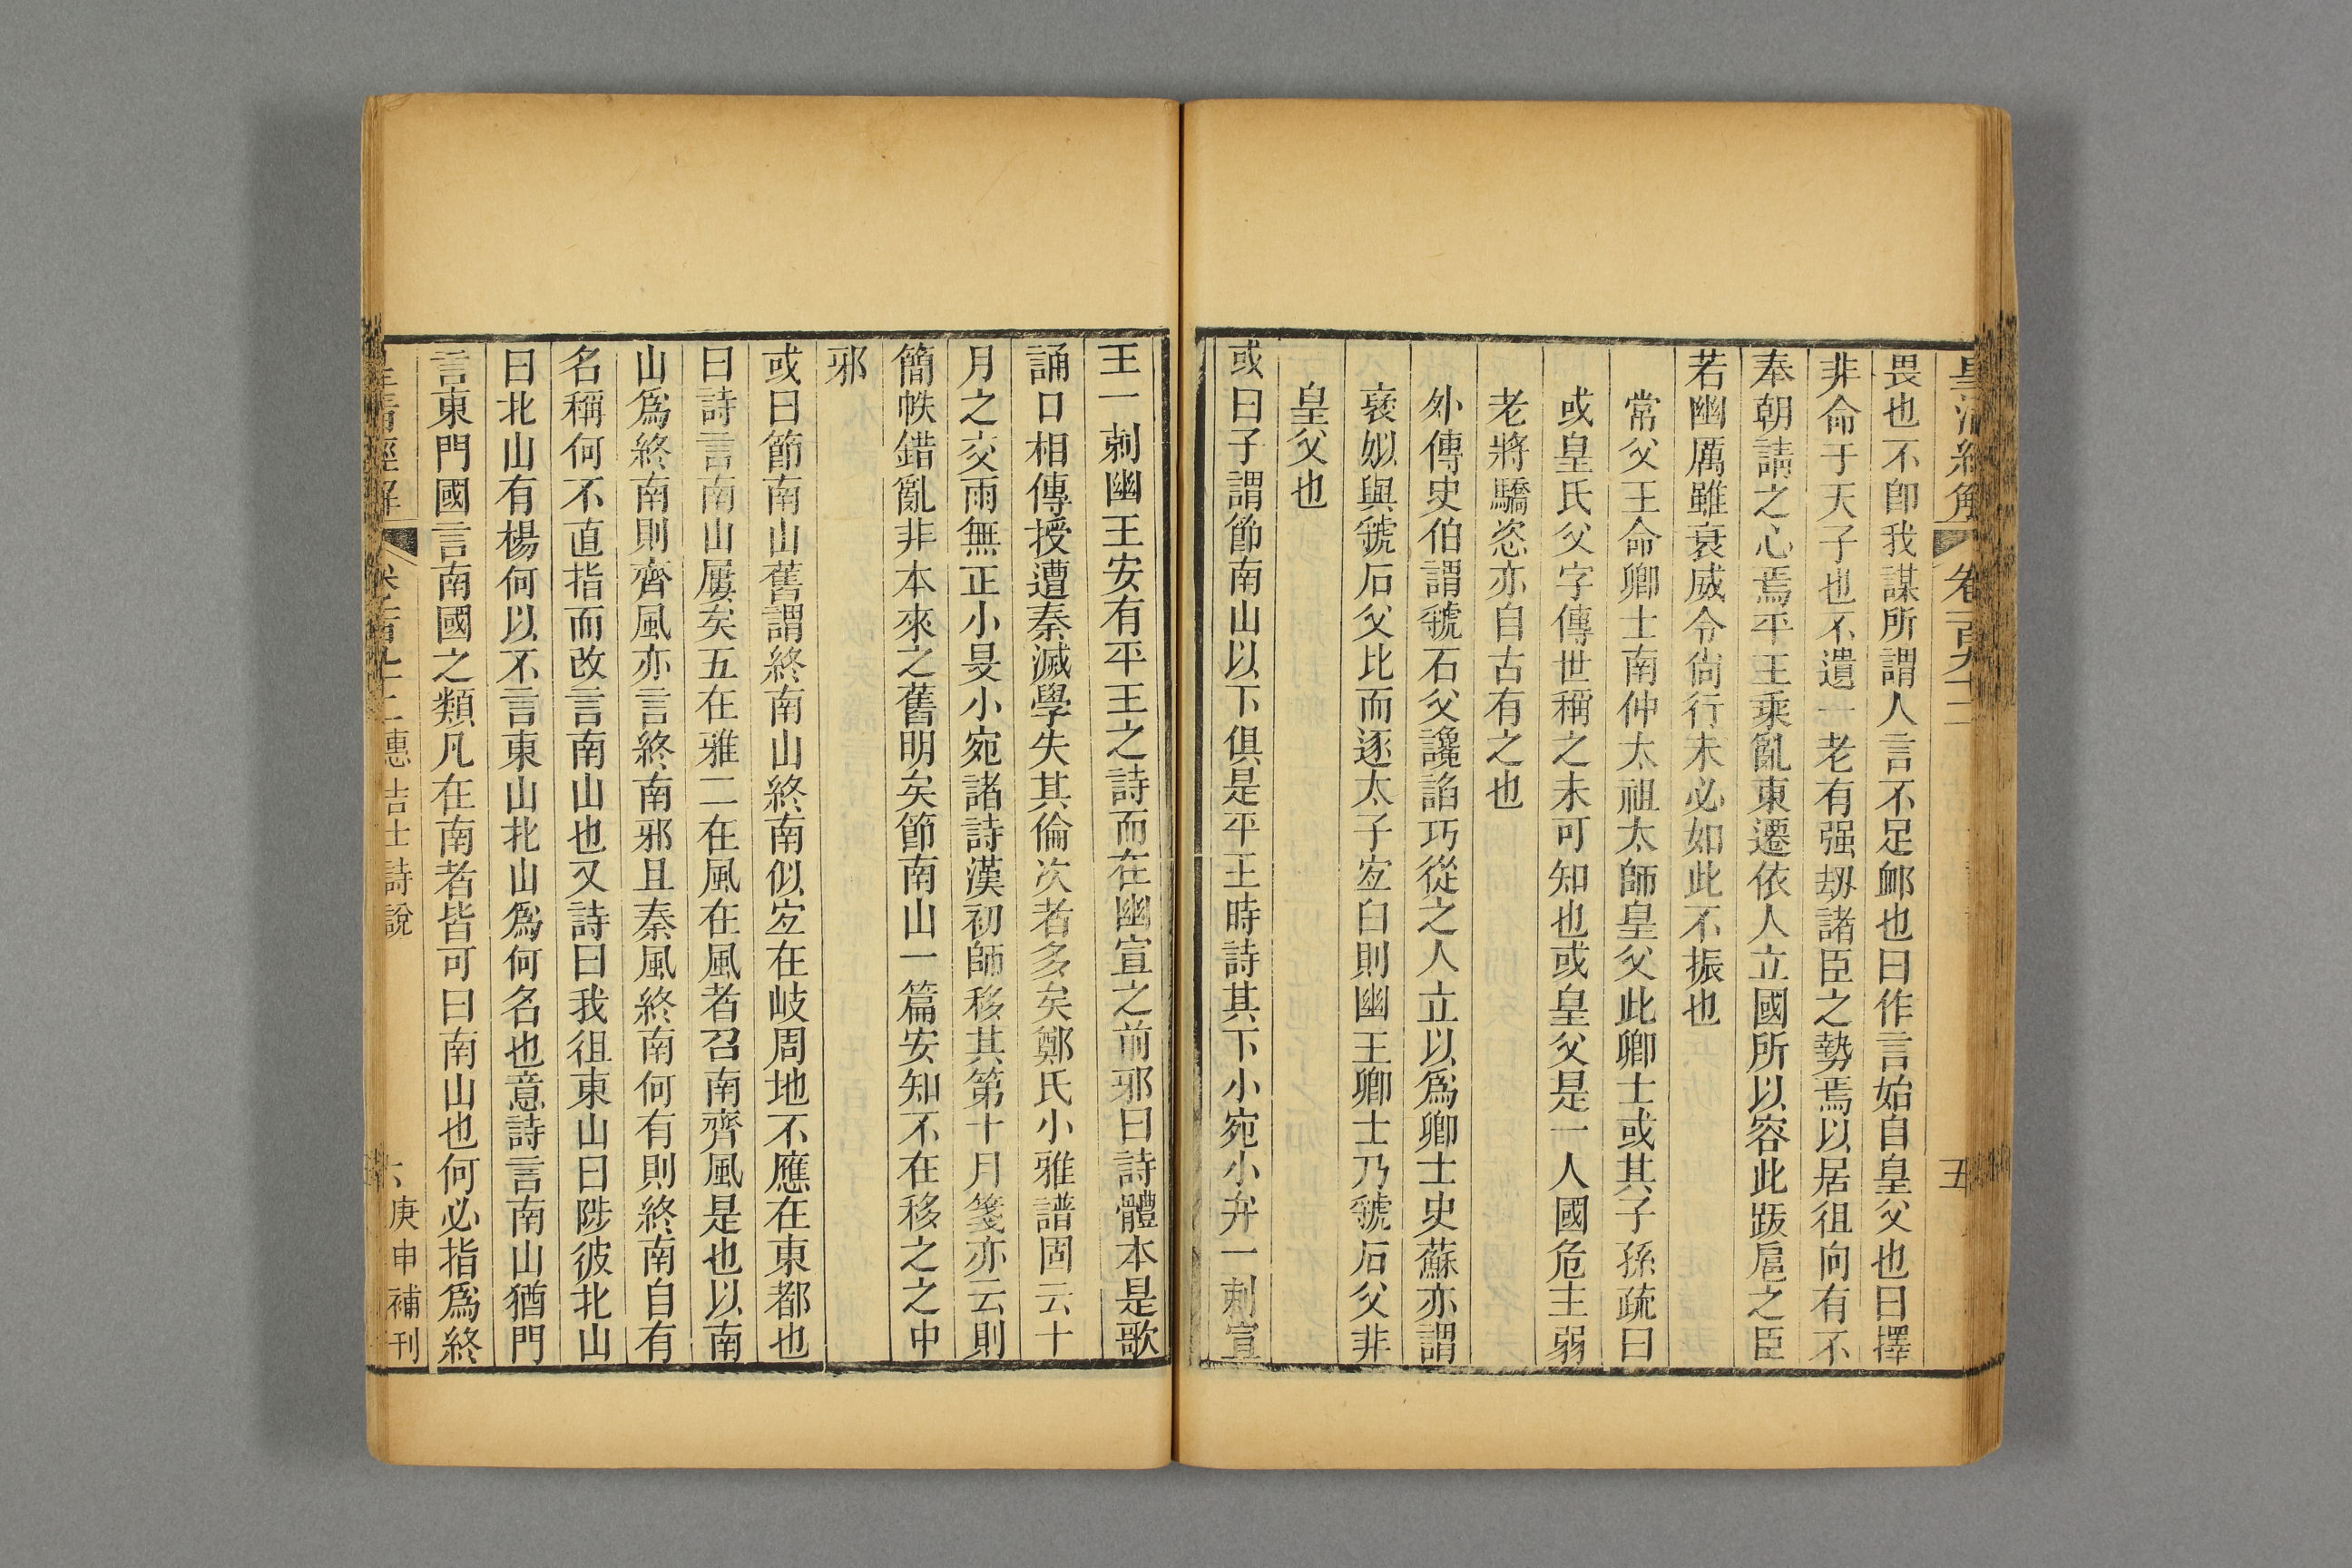 皇清經解 卷一百九十二 五
畏也不卽我謀所謂人言不足邮也曰作言始自皇父也曰擇
非命于天子也不遺一老有强刼諸臣之勢焉以居徂向有不
奉朝請之心焉平王乘亂東遷依人立國所以容此跋扈之臣
若幽厲雖衰威令尙行未必如此不振也
常父王命卿士南仲太祖太師皇父此卿士或其子孫疏曰
或皇氏父字傳世稱之未可知也或皇父是一人國危主弱
老將驕恣亦自古有之也
外傳史伯謂虢石父讒謟巧從之人立以爲卿士史蘇亦謂
襃姒與虢石父比而逐太子宐臼則幽王卿士乃虢石父非
皇父也
或曰子謂節南山以下俱是平王時詩其下小宛小弁一刺宣
王一刺幽王安有平王之詩而在幽宣之前邪曰詩體本是歌
誦口相傳授遭秦滅學失其倫次者多矣鄭氏小雅譜固云十
月之交雨無正小旻小宛諸詩漢初師移其第十月箋亦云則
簡帙錯亂非本來之舊明矣節南山一篇安知不在移之之中
邪
或曰節南山舊謂終南山終南似宐在岐周地不應在東都也
曰詩言南山屢矣五在雅二在風在風者召南齊風是也以南
山爲終南則齊風亦言終南邪且秦風終南何有則終南自有
名稱何不直指而改言南山也又詩曰我徂東山曰陟彼北山
曰北山有楊何以不言東山北山爲何名也意詩言南山猶門
言東門國言南國之類凡在南者皆可曰南山也何必指爲終
皇清經解 卷一百九十二惠吉士詩說 六 庚申補刊